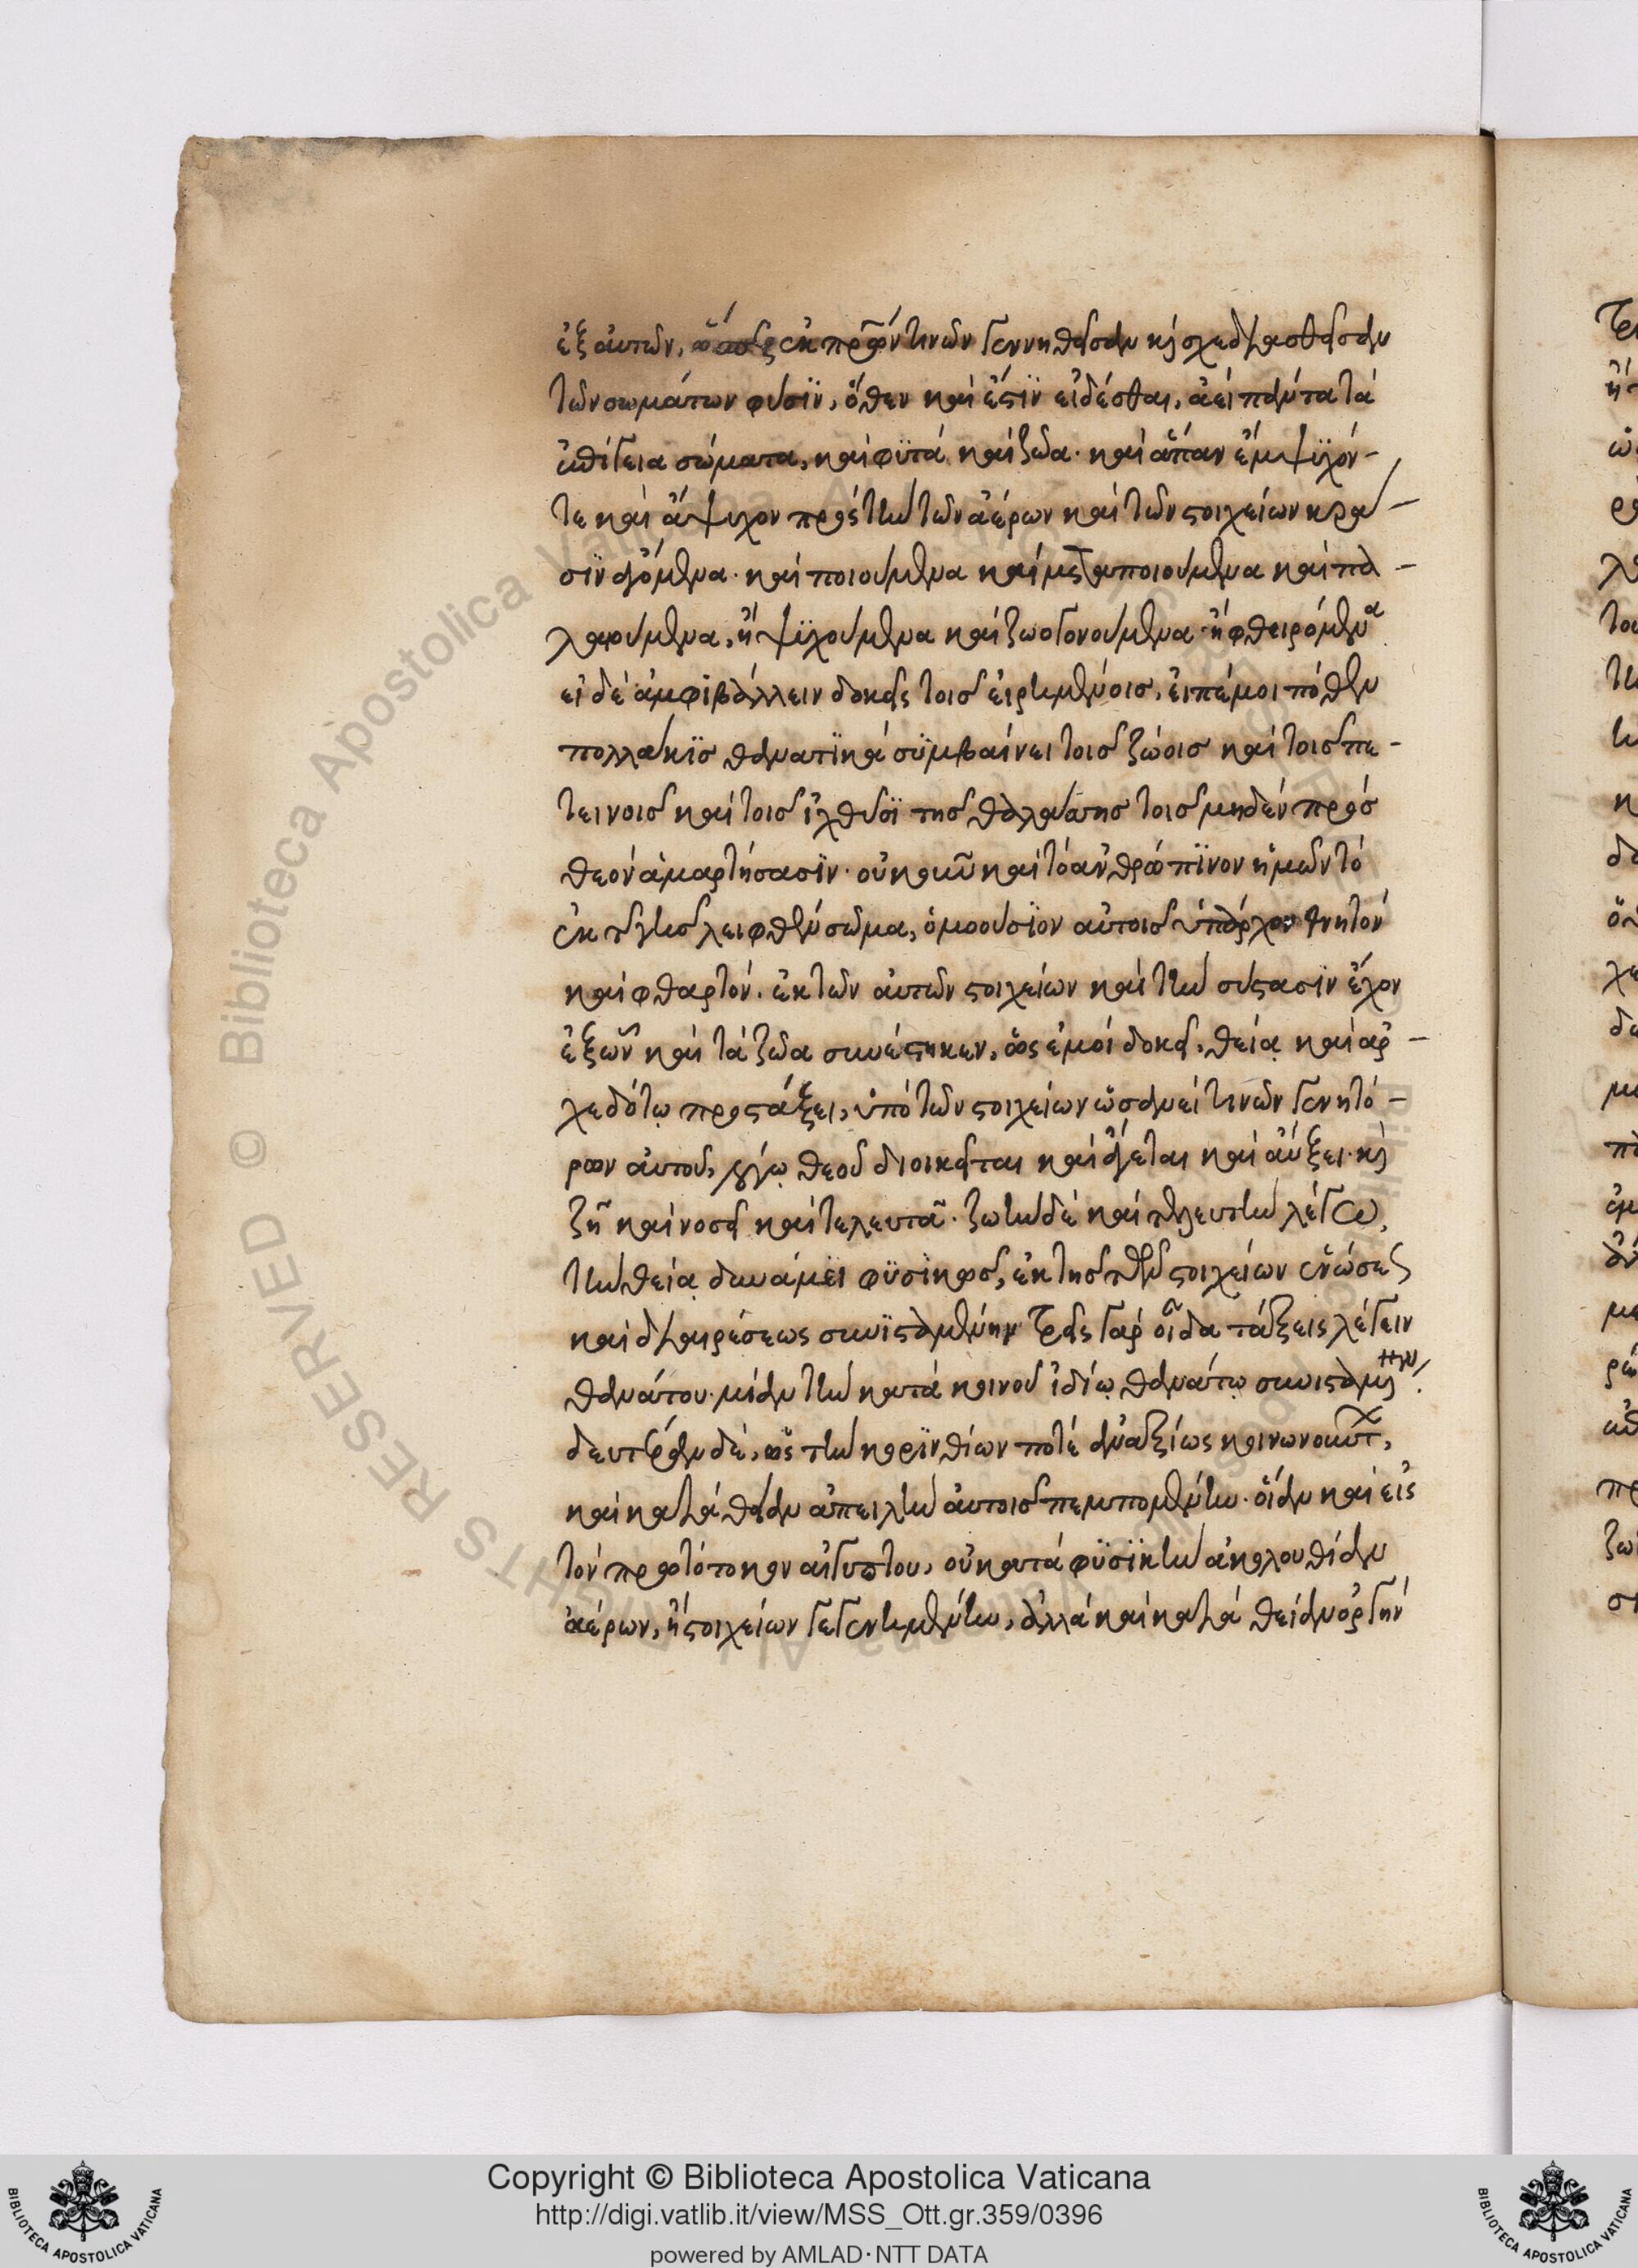 ἐξ αὐτῶν, ἐκ πρώτων τινῶν γεννηθεῖσαν καὶ σχεδιασθεῖσαν
τῶν σωμάτων φύσϊν, ὅθεν καὶ ἔστϊν εἰδέσθαι, ἀεὶ πάντα τὰ
ἐπίγεια σώματα, καὶ φϋτὰ καὶ ζῶα· καὶ ἅπαν ἔμψϋχόν-
τε καὶ ἄψυχον πρὸς τὴν τῶν ἀέρων καὶ τῶν στοιχείων κρᾶ-
σϊν ἀγόμενα· καὶ ποιούμενα καὶ μεταποιούμενα καὶ πα-
λαιούμενα, ἢ ψϋχούμενα καὶ ζωογονούμενα· ἢ φθειρόμενα
εἰ δὲ ἀμφϊβάλλειν δοκεῖς τοῖς εἰρημένοις, εἰπέ μοι πόθεν
πολλάκϊς θανατϊκὰ σϋμβαίνει τοῖς ζώοις καὶ τοῖς πε-
τεινοῖς καὶ τοῖς ἰχθύσϊ τῆς θαλάσσης τοῖς μηδὲν πρὸς
θεὸν ἁμαρτήσασϊν· οὐκοῦν καὶ τὸ ἀνθρώπϊνον ἡμῶν τὸ
ἐκ τῆς γῆς λειφθὲν σῶμα, ὁμοούσϊον αὐτοῖς ὑπάρχον θνητὸν
καὶ φθαρτόν. ἐκ τῶν αὐτῶν στοιχείων καὶ τὴν σύστασϊν ἔχον
ἐξ ὧν καὶ τὰ ζῶα συνέστηκεν, ὡς ἐμοὶ δοκεῖ, θείᾳ καὶ ἀρ-
χεδότῳ προστάξει, ὑπὸ τῶν στοιχείων ὡσανεί τινῶν γενητό-
ρων αὐτοῦ, λόγῳ θεοῦ διοικεῖται καὶ ἄγεται καὶ αὔξει· καὶ
ζῆ καὶ νοσεῖ καὶ τελευτᾶ· ζωὴν δὲ καὶ τελευτὴν λέγω,
τὴν θείᾳ δυνάμει φϋσϊκῶς, ἐκ τῆς τῶν στοιχείων ἑνώσεως
καὶ διαιρέσεως συνϊσταμένην τρεῖς γὰρ οἶδα τάξεις λέγειν
θανάτου· μίαν τὴν κατὰ κοινοῦ ἰδίῳ θανάτῳ συνισταμένην.
δευτέραν δὲ, ὡς τὴν κορϊνθίων ποτὲ ἀναξίως κοινωνούντων,
καὶ κατὰ θείαν ἀπειλὴν αὐτοῖς πεμπομένην. οἵαν καὶ εἰς
τὸν πρωτότοκον αἰγύπτου, οὐ κατὰ φϋσϊκὴν ἀκολουθίαν
ἀέρων, ἢ στοιχείων γεγενημένην, ἀλλὰ καὶ κατὰ θείαν ὀργὴν